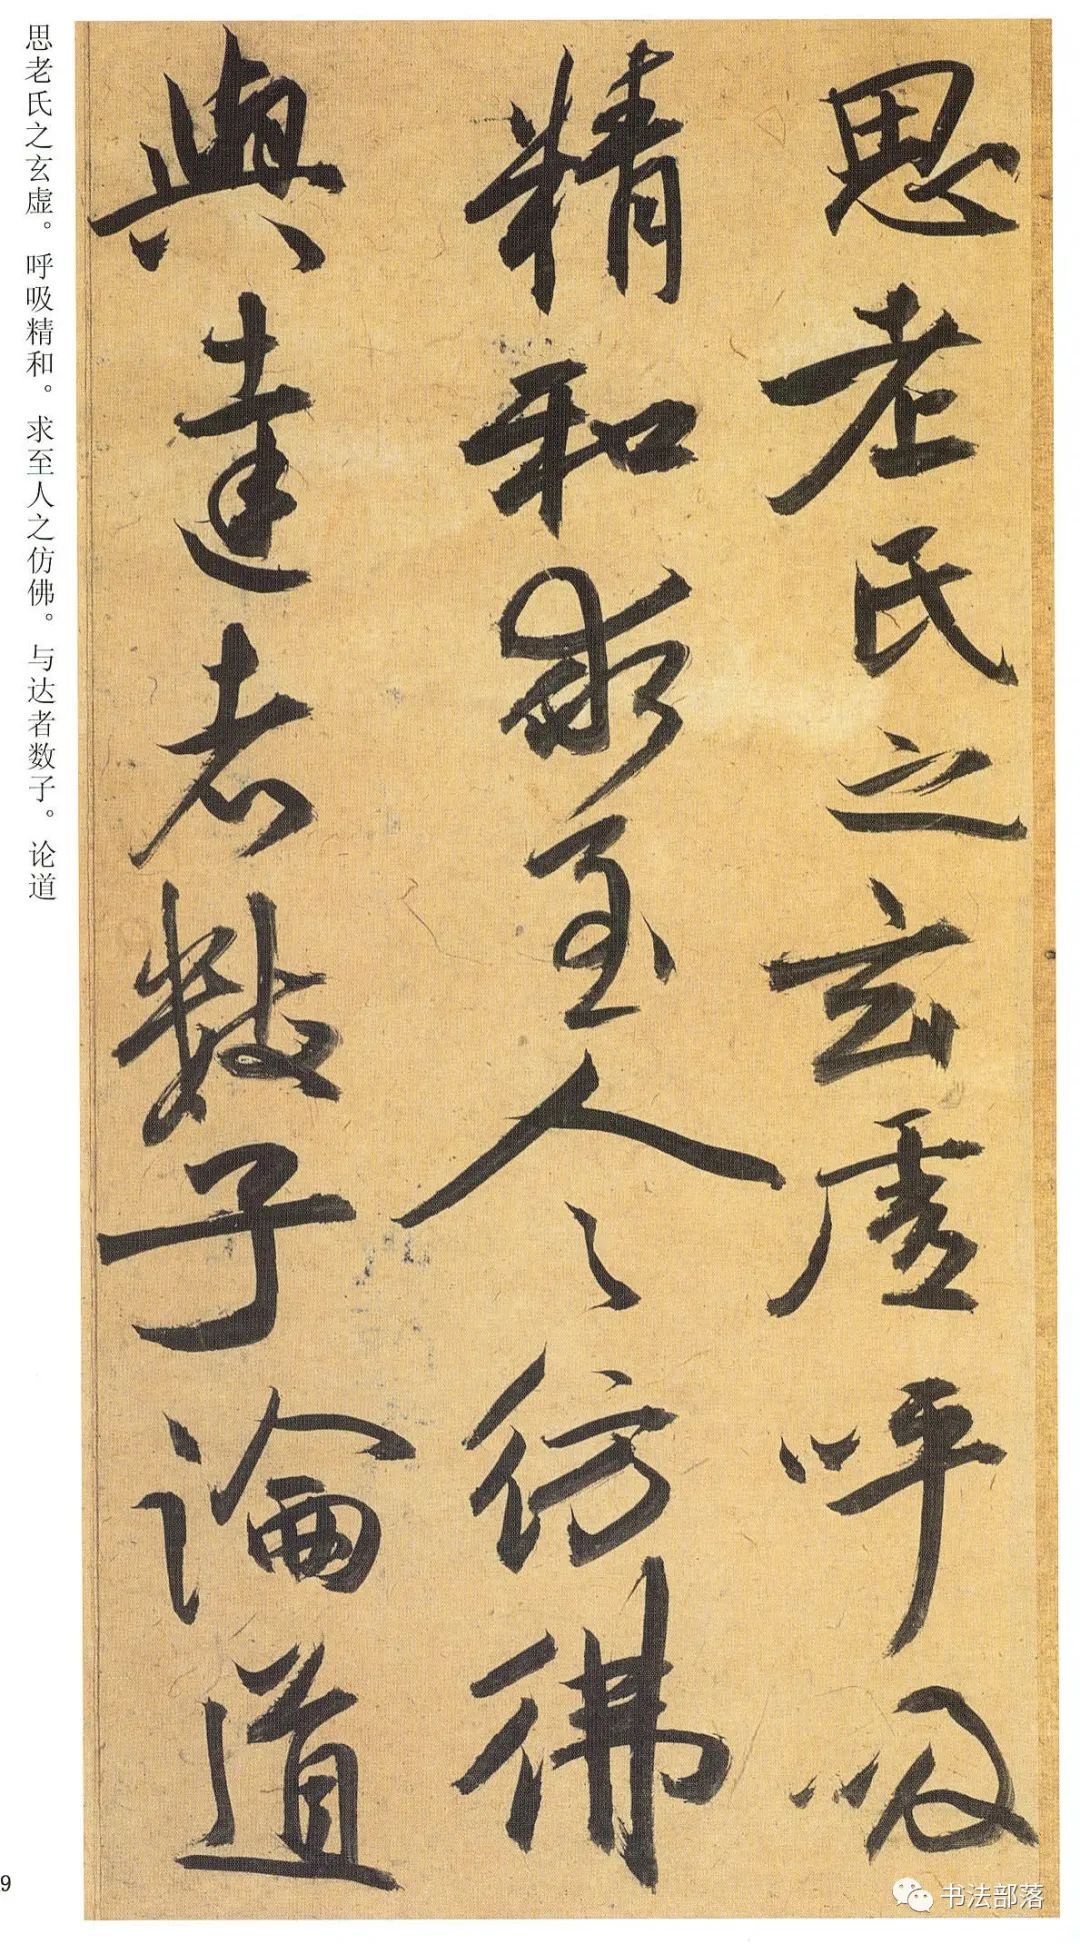 思老氏之玄虛呼吸
精和求至人之仿佛
與達者數子論道
思老氏之玄虚。呼吸精和。求至人之仿佛。与达者数子。论道
9
书法部落